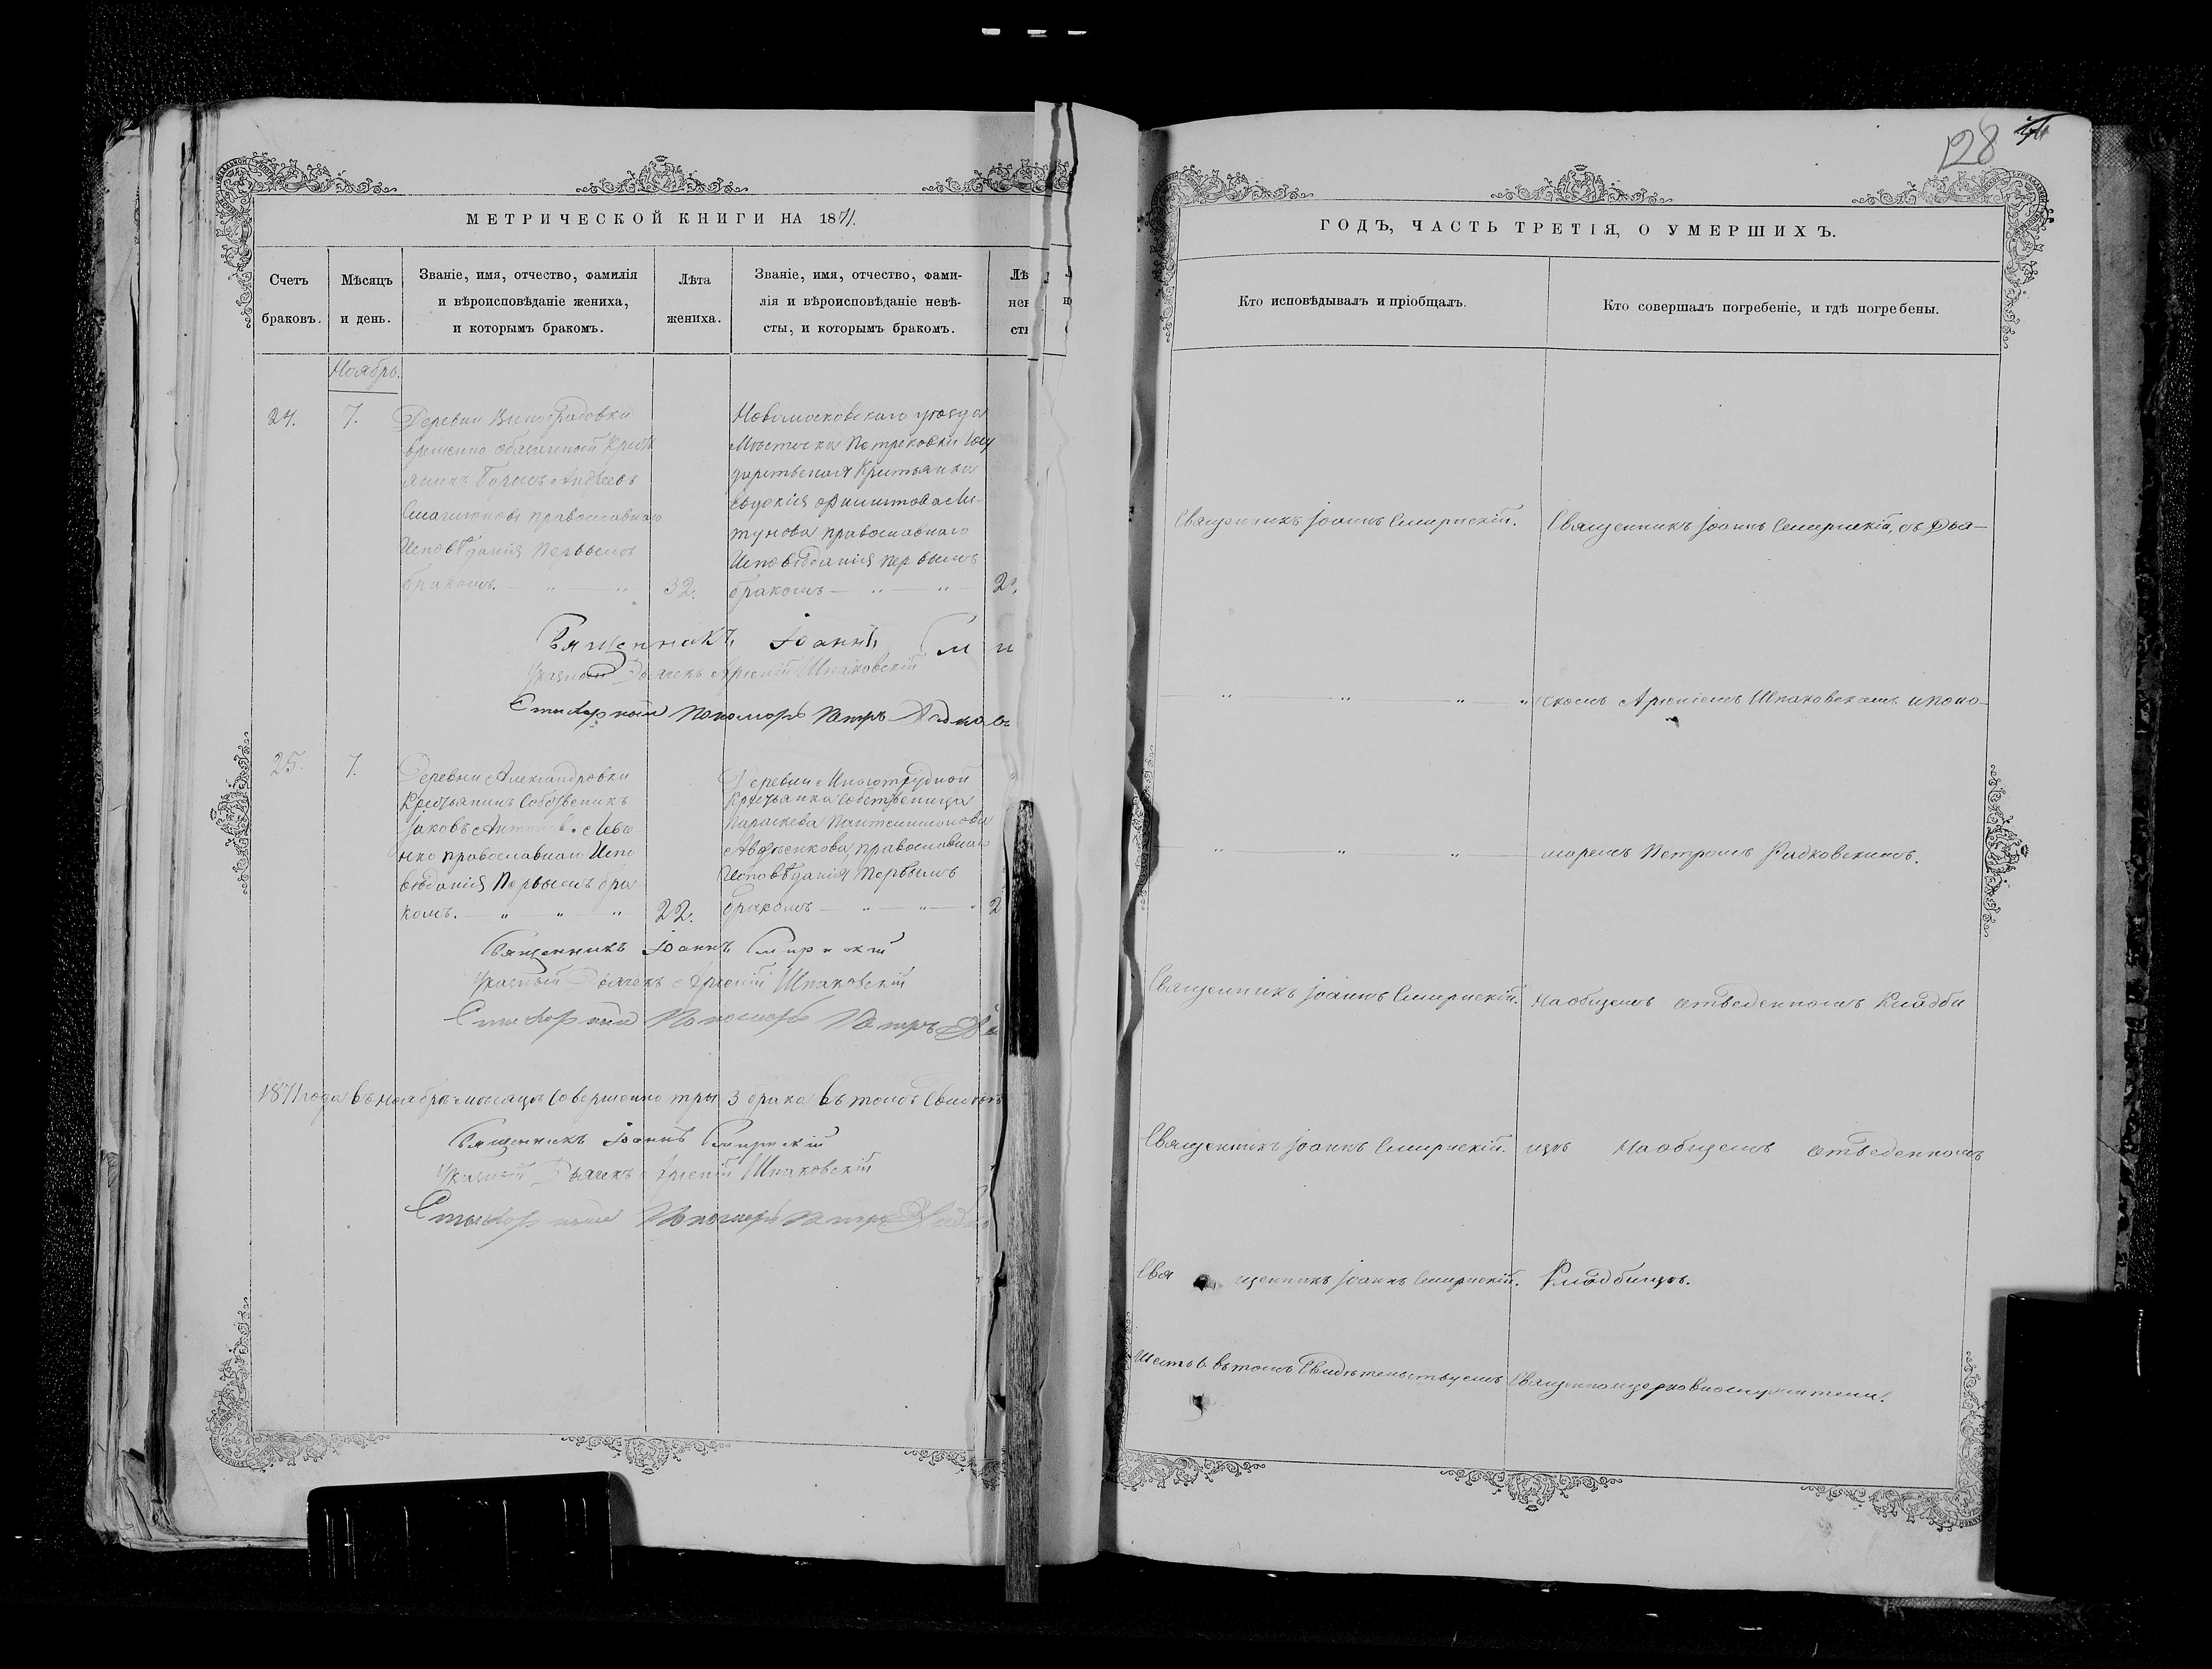 128
МЕТРИЧЕСКОЙ КНИГИ НА 1871.
Счетъ браковъ.
Мѣсяцъ и день.
Званіе, имя, отчество, фамилія
и вѣроисповѣданіе жениха,
и которымъ бракомъ.
Лѣта
жениха.
Званіе, имя, отчество, фами-
лія и вѣроисповѣданіе невѣ-
сты, и которымъ бракомъ.
Ноябрь.
24.
7.
Деревни Виноградовки
временно обязанный Крест
янинъ Андреевъ
православнаго
Исповѣданія первымъ
бракомъ. — " — " —
32.
Новомосковскаго уѣзда
Мѣстечка Петриковки Госу
дарственая Крестьянка
Евдокія
православнаго
Исповѣданія первымъ
бракомъ — " — " —
Священникъ Іоаннъ
Указный Дьячекъ Арсеній Шпаковскій
Стихарный Пономарь Петръ
25.
7.
Деревни Александровки
Крестьянинъ Собственикъ
Іаковъ Антоновъ
нко православнаго Испо
вѣданія Первымъ бра
комъ. — " — " — "
22.
Деревни Многотрудной
Крестьянка собственица
Параскева Пантелимонова
православнаго
Исповѣданія первымъ
бракомъ — " — " — "
Священникъ Іоаннъ Смирнскій
Указный Дьячекъ Арсеній Шпаковскій
Стихарный Пономарь Петръ
1871 года въ ноябрѣ мѣсяцѣ совершенно тры 3 брака въ томъ
Священникъ Іоаннъ Смирнскій
Указный Дьячекъ Арсеній Шпаковскій
Стихарный Пономарь Петръ
ГОДЪ, ЧАСТЬ ТРЕТІЯ, О УМЕРШИХЪ.
Кто исповѣдывалъ и пріобщалъ.
Кто совершалъ погребеніе, и гдѣ погребены.
Священникъ Іоаннъ Смирнскій.
Священникъ Іоаннъ Смирнскій, съ Дья-
— " — " — " — "
чкомъ Арсеніемъ Шпаковскимъ и поно-
— " — " — " —
маремъ Петромъ Радковскимъ.
Священникъ Іоаннъ Смирнскій.
На общемъ отведенномъ Кладби
Священникъ Іоаннъ Смирнскій.
щѣ На общемъ отведенномъ
Священникъ Іоаннъ Смирнскій.
Кладбищѣ.
Шесть 6. въ томъ Свидѣтельствуемъ Священноцерковнослужители.